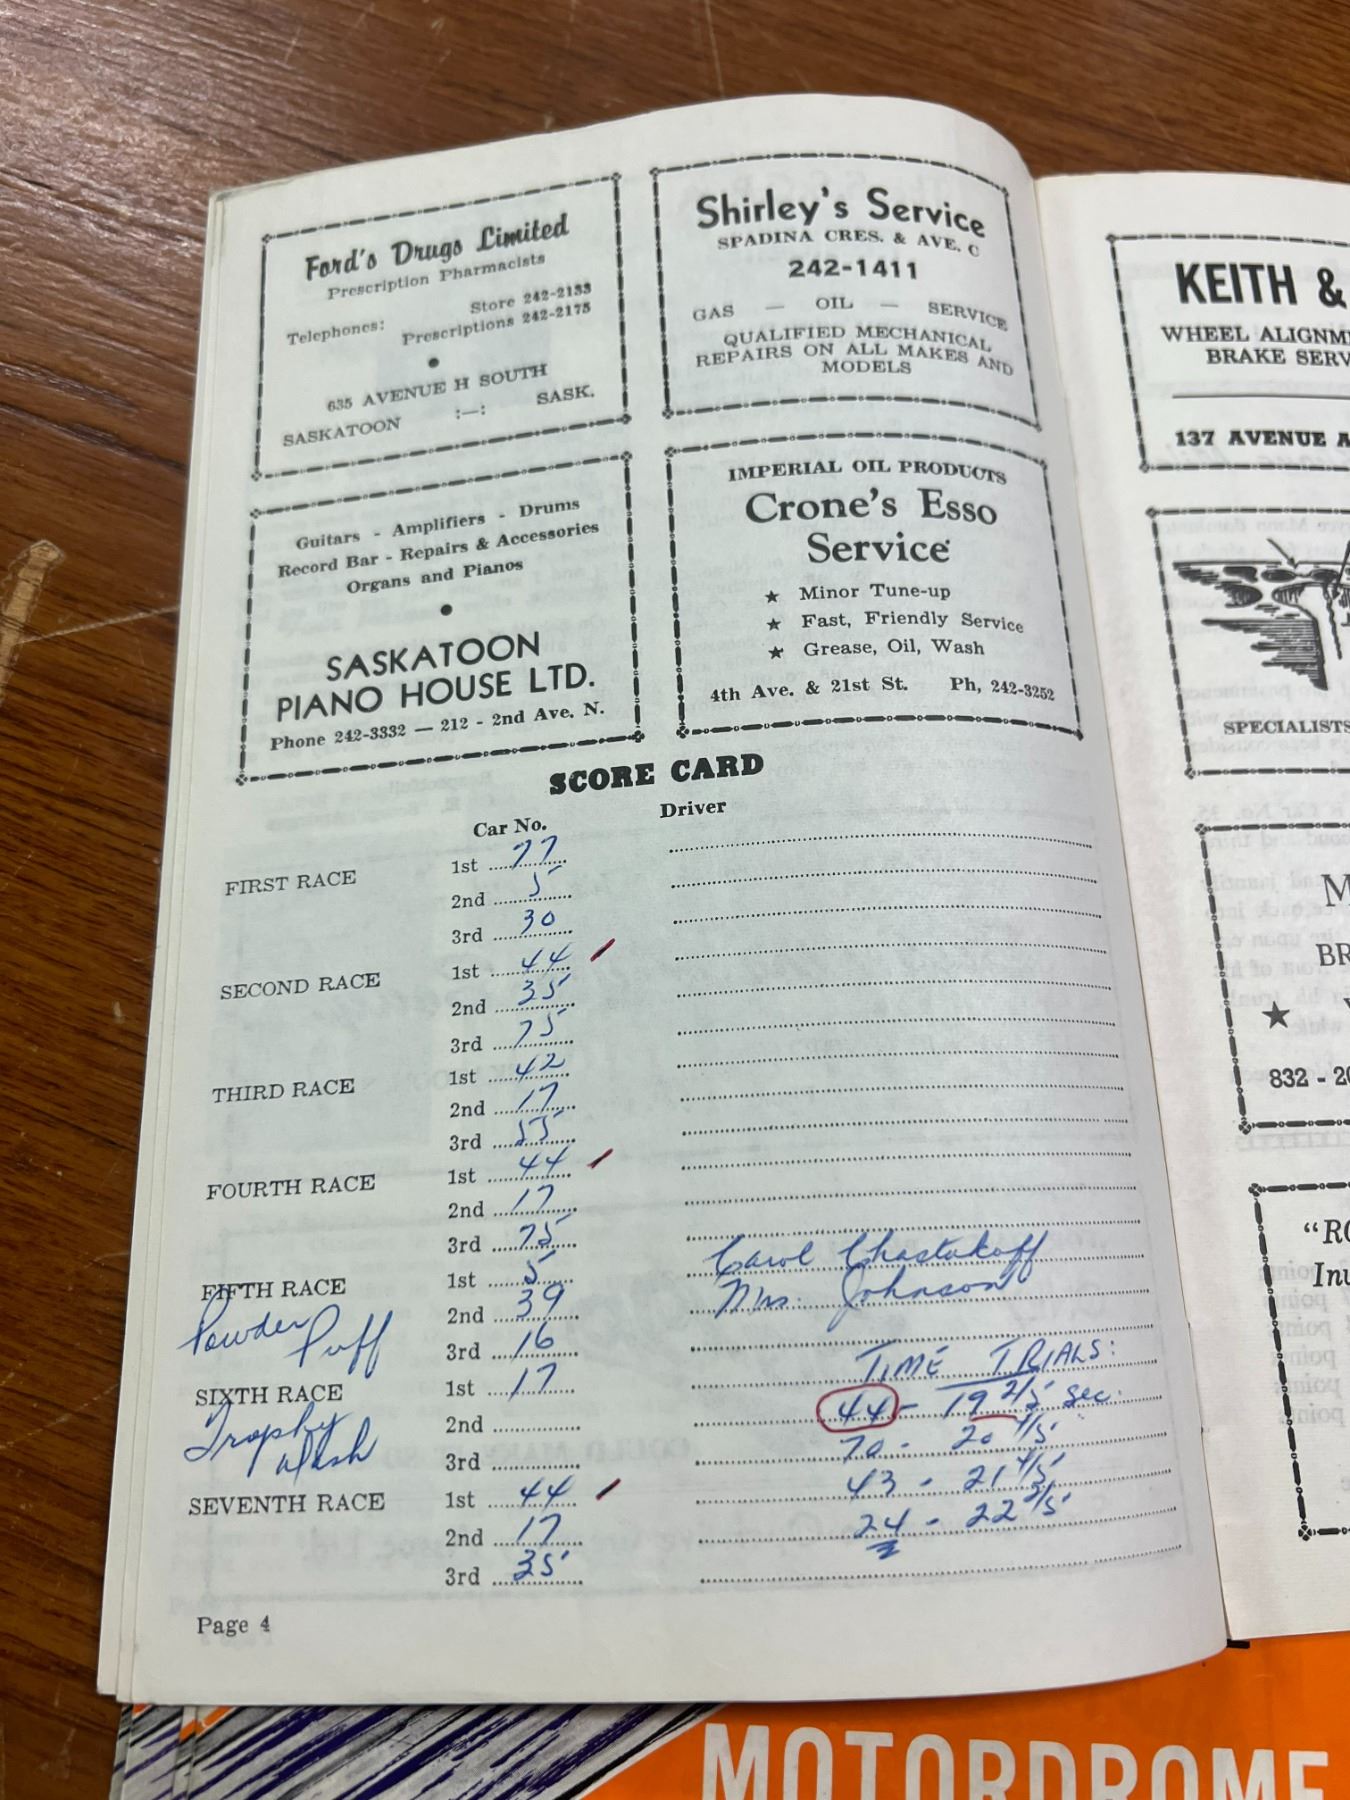 Ford's Drugs Limited
Prescription Pharmacists
Telephones: Store 242-2133
Prescriptions 242-2175
635 AVENUE H SOUTH
SASKATOON :—: SASK.
Shirley's Service
SPADINA CRES. & AVE. C
242-1411
GAS — OIL — SERVICE
QUALIFIED MECHANICAL
REPAIRS ON ALL MAKES AND
MODELS
Guitars - Amplifiers - Drums
Record Bar - Repairs & Accessories
Organs and Pianos
SASKATOON
PIANO HOUSE LTD.
Phone 242-3332 — 212 - 2nd Ave. N.
IMPERIAL OIL PRODUCTS
Crone's Esso
Service
★ Minor Tune-up
★ Fast, Friendly Service
★ Grease, Oil, Wash
4th Ave. & 21st St. Ph, 242-3252
SCORE CARD
Car No. Driver
FIRST RACE 1st 77
2nd 5
3rd 30
SECOND RACE 1st 44
2nd 35
3rd 75
THIRD RACE 1st 42
2nd 17
3rd 55
FOURTH RACE 1st 44
2nd 17
3rd 75
FIFTH RACE 1st 5 Carol Chastukoff
Powder Puff 2nd 39 Mrs. Johnson
3rd 16
TIME TRIALS:
SIXTH RACE 1st 17
44 - 19 2/5 sec.
Trophy Dash 2nd
70 - 20 4/5
3rd
43 - 21 4/5
SEVENTH RACE 1st 44
24 - 22 2/5
2nd 17
3rd 35
Page 4
KEITH &
WHEEL
BRAKE
137 AVENUE
SPECIALISTS
★
832 -
MOTORDROME